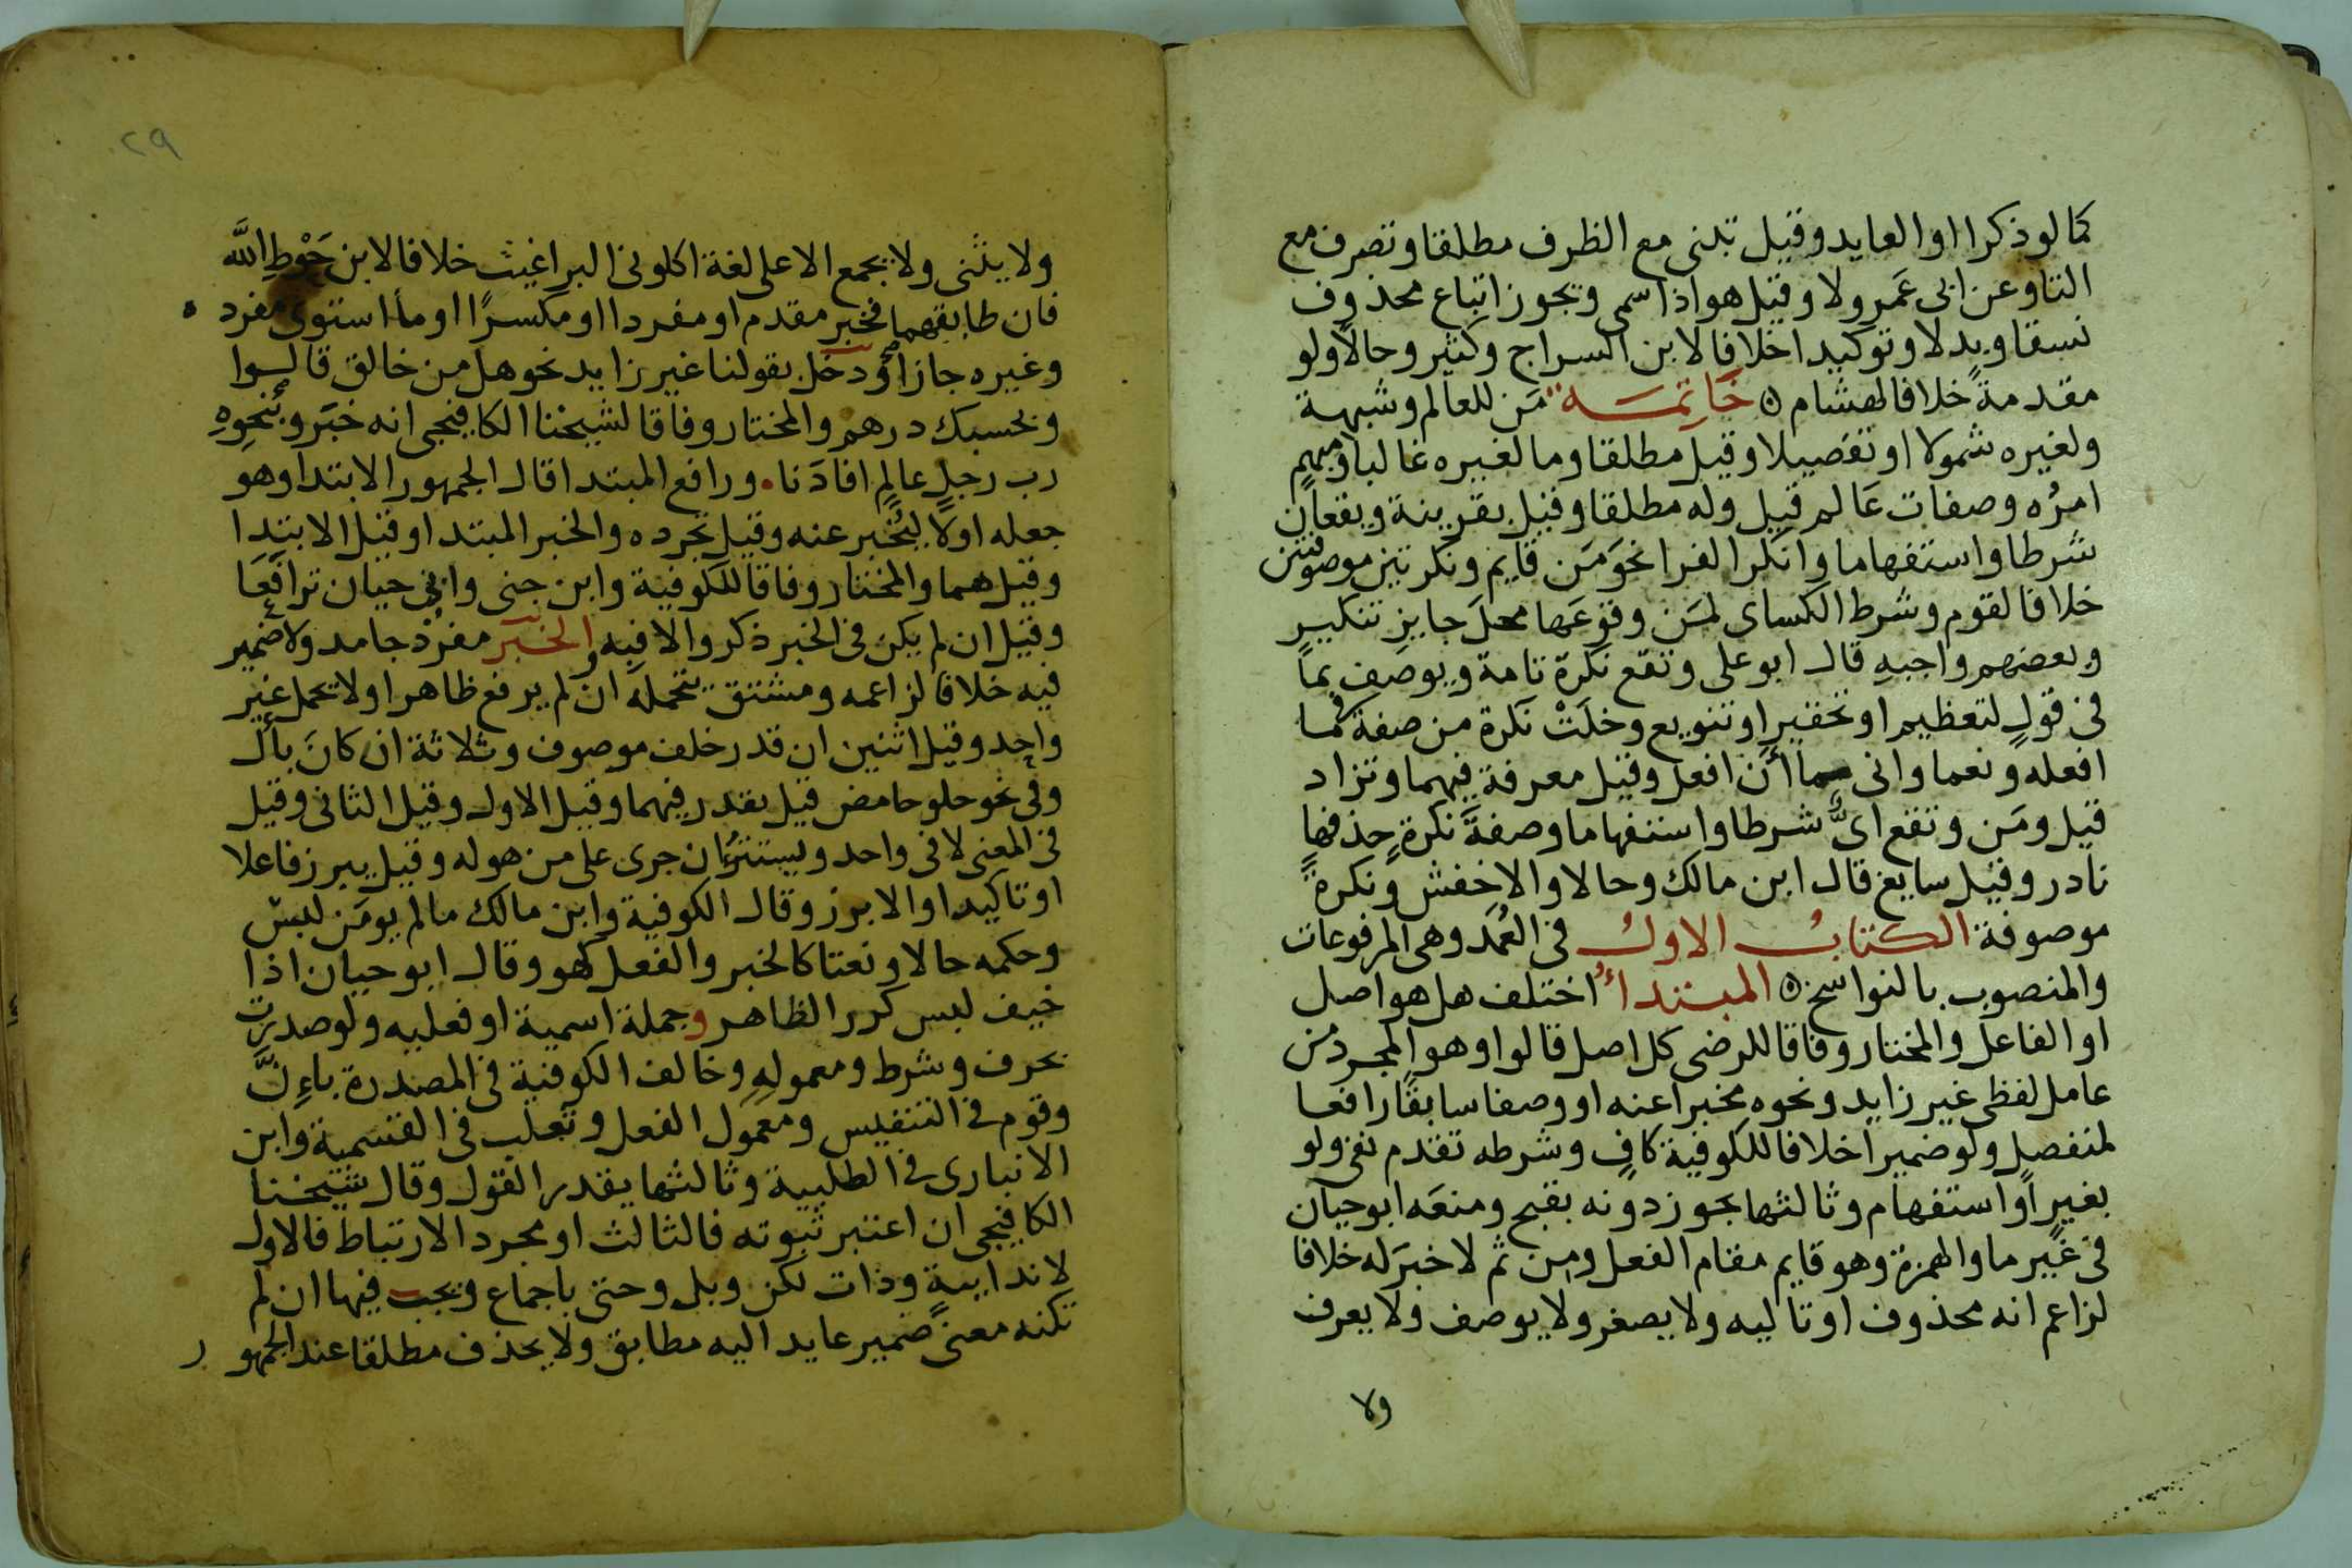 كما لو ذكرا او العايد وقيل تبنى مع الظرف مطلقا وتصرف مع
التا وعن ابى عَمرو لا وقيل هوا ذا سمى ويجوز اتباع محذوف
نسقا وبدلا وتوكيدا خلافا لابن السراج وكثير وحالا ولو
مقدمة خلافا لهشام ٥ خَاتِمَة مَن للعالم وشبهة
ولغيره شمولا او تفصيلا وقيل مطلقا وما لغيره غالبا ومبهم
امرُه وصفات عَالم قيل وله مطلقا وقيل بقرينة ويقعان
شرطا واستفهاما وانكر الفرا نحوَ مَن قايم ونكرتين موصوفتين
خلافا لقوم وشرط الكساى لمَن وقوعَها محلَ جايز تنكير
وبعضهم واجبه قال ابو على وتقع نكرة تامة ويوصف بما
فى قولٍ لتعظيم او تحقير او تنويع وخلَتْ نكرة من صفة كما
افعله ونعما وانى مما أن افعل وقيل معرفة فيهما وتزاد
قيل ومَن وتقع اىٌّ شرطا واستفهاما وصفةَ نكرةٍ حذفها
نادر وقيل سايغ قال ابن مالك وحالا والاخفش ونكرةً
موصوفة الكتابُ الاولُ فى العُمَد وهى المرفوعات
والمنصوب بالنواسخ ٥ المبتداُ اختلف هل هو اصل
او الفاعل والمختار وفاقا للرضى كل اصل قالوا وهو المجرد من
عامل لفظى غير زايد ونحوه مخبرا عنه او وصفا سابقًا رافعا
لمنفصلٍ ولو ضميرا خلافا للكوفية كافٍ وشرطه تقدم نفى ولو
بغيرٍ او استفهام وثالثها يجوز دونه بقبح ومنعَه ابو حيان
فى غير ما والهمزة وهو قايم مقام الفعل ومن ثم لا خبرَ له خلافا
لزاعم انه محذوف او تاليه ولا يصغر ولا يوصف ولا يعرف
ولا
٢٩
ولا يثنى ولا يجمع الا على لغة اكلونى البراغيث خلافا لابن حَوْطِ اللَّه
فان طابقهما فخبر مقدم او مفردا او مكسرًا او ما استوى مفرد ه
وغيره جازا ودخل بقولنا غير زايد نحو هل من خالق قالوا
وبحسبك درهم والمختار وفاقا لشيخنا الكافيجى انه خبَر وبنحوِه
رب رجلٍ عالمٍ افادَنا . ورافع المبتدا قال الجمهور الابتدا وهو
جعله اولًا ليُخبر عنه وقيل تجرده والخبر المبتدا وقيل الابتدا
وقيل هما والمختار وفاقا للكوفية وابن جنى وابى حيان ترافَعَا
وقيل ان لم يكن فى الخبر ذكر والا فبه والخبر مفرد جامد ولا ضمير
فيه خلافا لزاعمه ومشتق يتحمله ان لم يرفع ظاهرا ولا تحمل غير
واحد وقيل اثنين ان قدر خلف موصوف وثلاثة ان كانَ بأل
وفى نحو حلو حامض قيل يقدر فيهما وقيل الاول وقيل الثانى وقيل
فى المعنى لا فى واحد ويستترُ ان جرى على من هو له وقيل يبرز فاعلا
او تاكيدا والا برز وقال الكوفية وابن مالك ما لم يومَن لبس
وحكمه حالا ونعتا كالخبر والفعل كهو وقال ابو حيان اذا
خيف لبس كرر الظاهر وجملة اسمية او فعليه ولو صدرت
بحرف وشرط ومعمولهِ وخالف الكوفية فى المصدرة باِنَّ
وقوم فى التنفيس ومعمول الفعل وثعلب فى القسمية وابن
الانبارى فى الطلبية وثالثها يقدر القول وقال شيخنا
الكافيجى ان اعتبر ثبوته فالثالث او مجرد الارتباط فالاول
لا ندابيةٍ وذات لكن وبل وحتى باجماع ويجب فيها ان لم
تكنه معنىً ضمير عايد اليه مطابق ولا يحذف مطلقا عند الجمهور